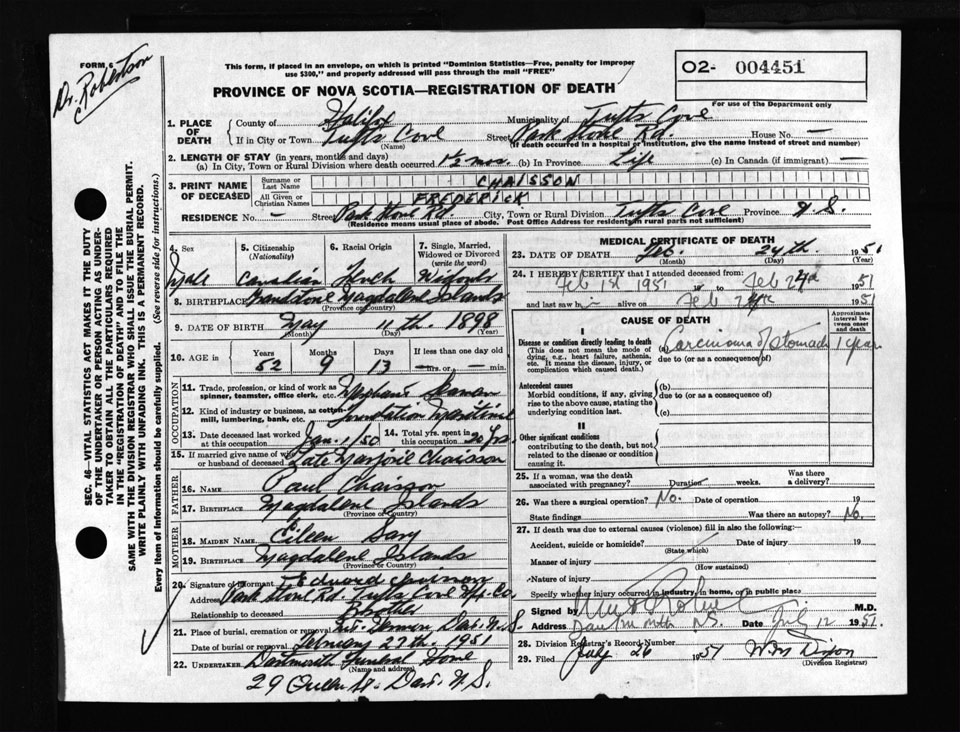 FORM 6
Dr. Robertson
This form, if placed in an envelope, on which is printed "Dominion Statistics—Free, penalty for improper
use $300," and properly addressed will pass through the mail "FREE"
PROVINCE OF NOVA SCOTIA—REGISTRATION OF DEATH
O2- 004451
For use of the Department only
1. PLACE OF DEATH
County of Halifax Municipality of Tufts Cove
If in City or Town Tufts Cove (Name) Street Park Stone Rd. House No. —
(If death occurred in a hospital or institution, give its name instead of street and number)
2. LENGTH OF STAY (in years, months and days)
(a) In City, Town or Rural Division where death occurred 1½ mos. (b) In Province Life (c) In Canada (if immigrant) —
3. PRINT NAME OF DECEASED
Surname or Last Name CHAISSON
All Given or Christian Names FREDERICK
RESIDENCE No. — Street Park Stone Rd. City, Town or Rural Division Tufts Cove Province N.S.
(Residence means usual place of abode. Post Office Address for residents in rural parts not sufficient)
4. Sex 5. Citizenship (Nationality) 6. Racial Origin 7. Single, Married, Widowed or Divorced (write the word)
Male Canadian French
8. BIRTHPLACE Magdalene Islands
(Province or Country)
9. DATE OF BIRTH May 11th. 1898
(Month) (Day) (Year)
10. AGE in Years Months Days If less than one day old
52 9 13 — hrs. or — min.
OCCUPATION
11. Trade, profession, or kind of work as spinner, teamster, office clerk, etc.
12. Kind of industry or business, as cotton-mill, lumbering, bank, etc.
13. Date deceased last worked at this occupation Jan. 1/50 14. Total yrs. spent in this occupation 20 Yrs.
15. If married give name of wife or husband of deceased Late Marjorie Chaisson
FATHER
16. NAME Paul Chaisson
17. BIRTHPLACE Magdalene Islands
(Province or Country)
MOTHER
18. MAIDEN NAME Eileen
19. BIRTHPLACE Magdalene Islands
(Province or Country)
20. Signature of Informant Edward
Address Park Stone Rd. Tufts Cove Hfx. Co.
Relationship to deceased Brother
21. Place of burial, cremation or removal Dart. N.S.
Date of burial or removal February 27th, 1951
22. UNDERTAKER Dartmouth Funeral Home
(Name and address)
29 Dart. N.S.
MEDICAL CERTIFICATE OF DEATH
23. DATE OF DEATH Feb 24th. 1951
(Month) (Day) (Year)
24. I HEREBY CERTIFY that I attended deceased from:
Feb 1st 1951 to Feb 24th 1951
and last saw h — alive on Feb 24th 1951
CAUSE OF DEATH
Approximate interval between onset and death
I
Disease or condition directly leading to death (a) Carcinoma of stomach 1 year
(This does not mean the mode of dying, e.g., heart failure, asthenia, etc. It means the disease, injury, or complication which caused death.)
due to (or as a consequence of)
Antecedent causes (b)
Morbid conditions, if any, giving rise to the above cause, stating the underlying condition last.
due to (or as a consequence of)
(c)
II
Other significant conditions
contributing to the death, but not related to the disease or condition causing it.
25. If a woman, was the death associated with pregnancy? Duration weeks. Was there a delivery?
26. Was there a surgical operation? No. Date of operation 19
State findings Was there an autopsy? No.
27. If death was due to external causes (violence) fill in also the following:—
Accident, suicide or homicide? Date of injury 19
(State which)
Manner of injury
(How sustained)
Nature of injury
Specify whether injury occurred in industry, in home, or in public place
Signed by M.D.
Address Dartmouth N.S. Date July 12 1951.
28. Division Registrar's Record Number
29. Filed July 26 1951 Dixon
(Division Registrar)
SEC. 46—VITAL STATISTICS ACT MAKES IT THE DUTY
OF THE UNDERTAKER OR PERSON ACTING AS UNDER-
TAKER TO OBTAIN ALL THE PARTICULARS REQUIRED
IN THE "REGISTRATION OF DEATH" AND TO FILE THE
SAME WITH THE DIVISION REGISTRAR WHO SHALL ISSUE THE BURIAL PERMIT.
WRITE PLAINLY WITH UNFADING INK. THIS IS A PERMANENT RECORD.
Every Item of Information should be carefully supplied. (See reverse side for instructions.)